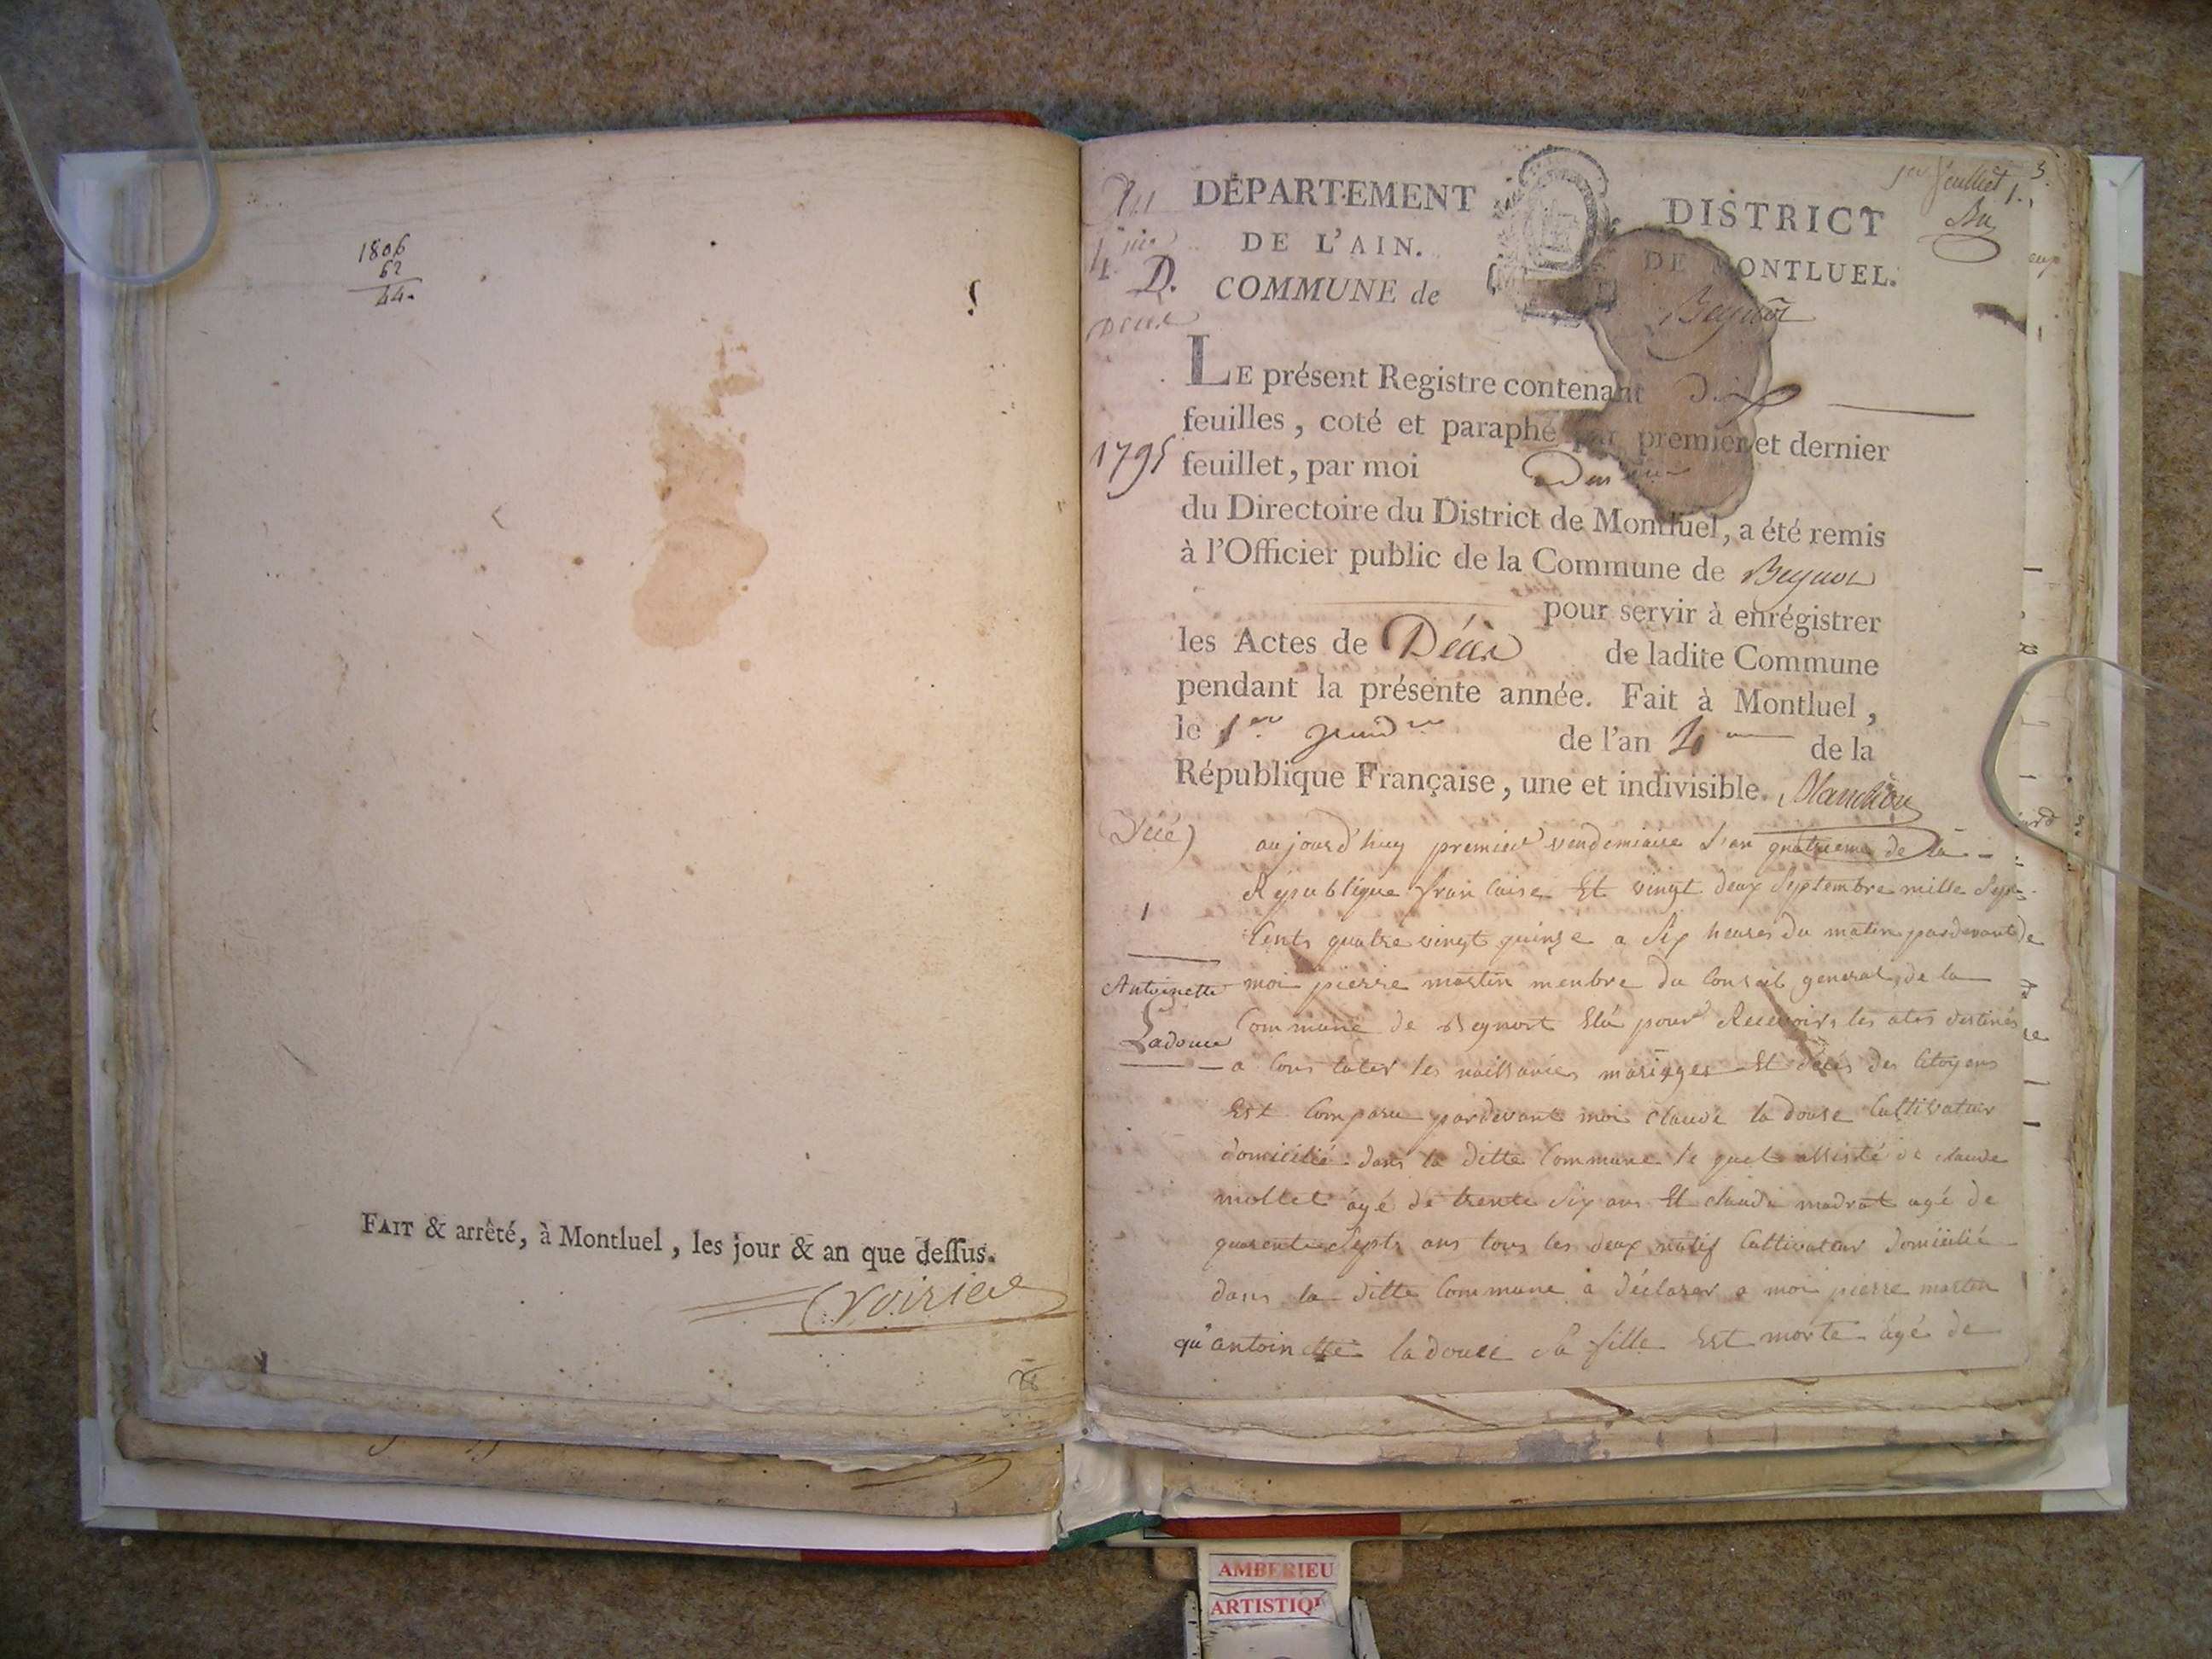 1806
62
44.
FAIT & arrêté, à Montluel, les jour & an que dessus.
Cvoirier
1er feuillet 1.
3.
DÉPARTEMENT
DE L'AIN.
COMMUNE de
D.
DISTRICT
DE MONTLUEL.
Beynôt
LE présent Registre contenant Dix
feuilles, coté et paraphé par premier et dernier
1795
feuillet, par moi
du Directoire du District de Montluel, a été remis
à l'Officier public de la Commune de Beynot
pour servir à enrégistrer
les Actes de Décès de ladite Commune
pendant la présente année. Fait à Montluel,
le 1er de l'an 4 de la
République Française, une et indivisible.
aujourd'huy premier vendemiaire l'an quatrieme de la
Republique francaise Et vingt deux Septembre mille Sept
1
Cents quatre vingt quinze a Six heures du matin pardevant
Antoinette
moi pierre martin menbre du Conseil general de la
Ladouce
Commune de Beynort Elû pour Recevoir les ates destinés
a Constater les naissances mariages Et décés des Citoyens
Est Comparu pardevant moi claude la douse Cultivateur
domicilié dans la ditte Commune le quel assisté de claude
mollet agé de trente Six ans Et claude madrat agé de
quarente Sept ans tous les deux natif Cultivateur domicilié
dans la ditte Commune a déclarer a moi pierre martin
qu'antoinette la douce sa fille Est morte agé de
AMBERIEU
ARTISTIQ